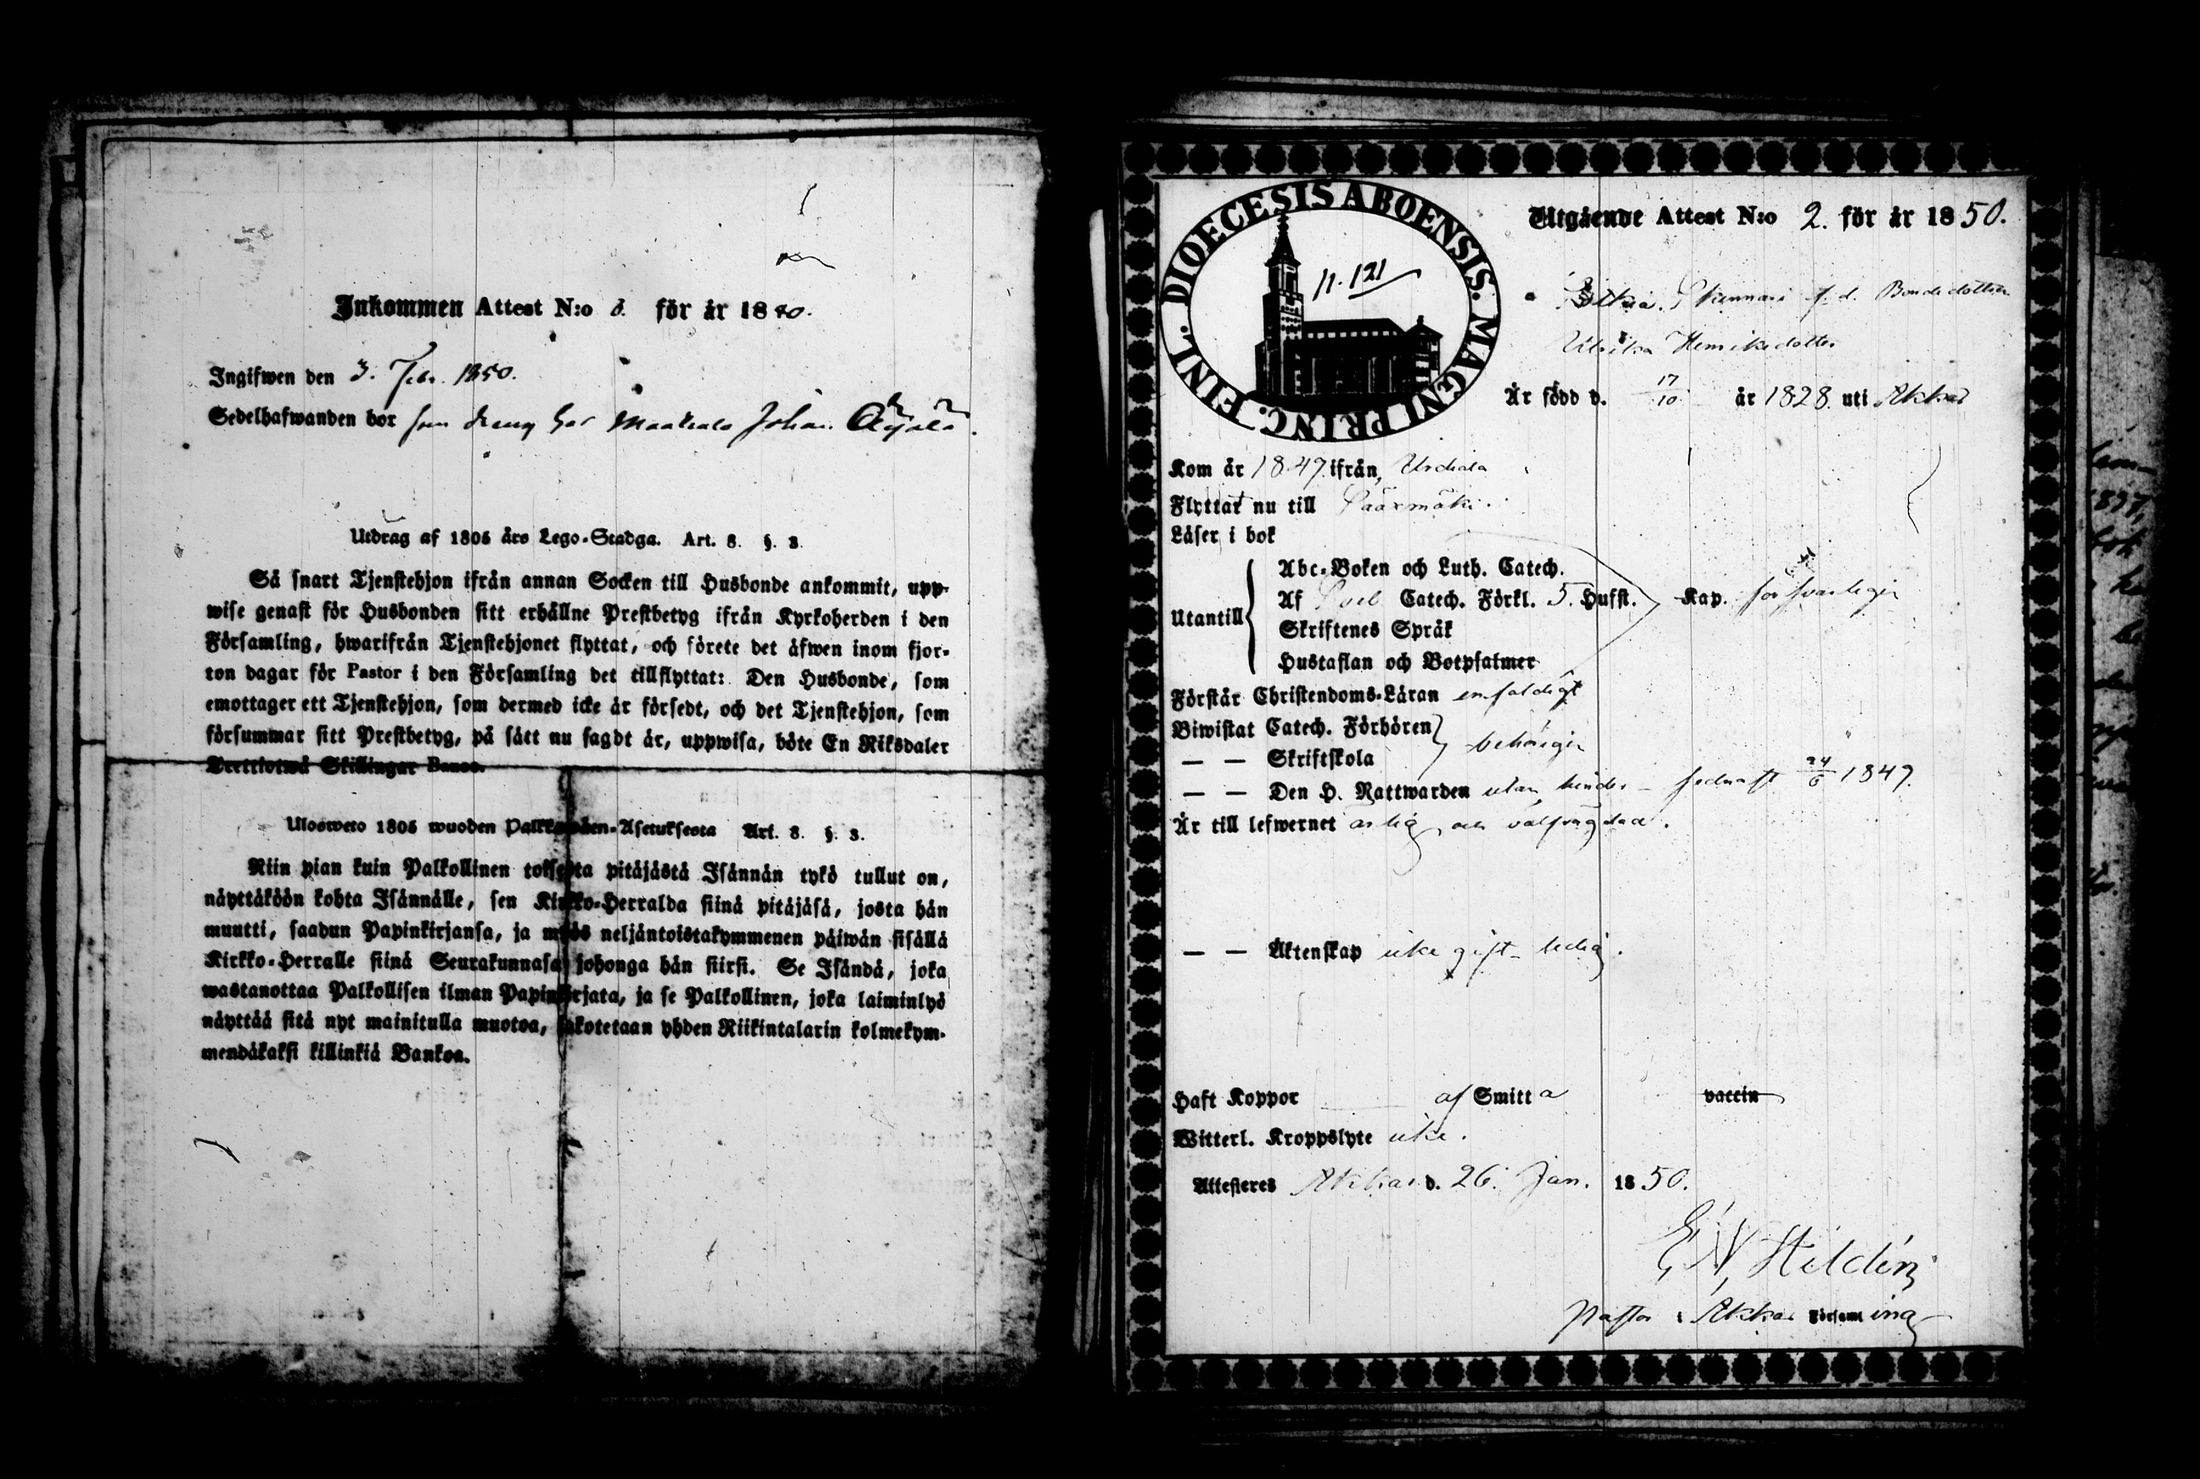 Inkommen Attest N:o för år 18
Ingifwen den 3. Febr. 1850.
Sedelhafwanden bor som dräng hos Johan
Utdrag af 1805 års Lego-Stadga. Art. 8. §. 3.
Så snart Tjenstehjon ifrån annan Socken till Husbonde ankommit, upp-
wise genast för Husbonden sitt erhållne Prestbetyg ifrån Kyrkoherden i den
Församling, hwarifrån Tjenstehjonet flyttat, och förete det äfwen inom fjor-
ton dagar för Pastor i den Församling det tillflyttat: Den Husbonde, som
emottager ett Tjenstehjon, som dermed icke är försedt, och det Tjenstehjon, som
försummar sitt Prestbetyg, på sätt nu sagdt är, uppwisa, böte En Riksdaler
Trettiotwå Skillingar Banco.
Ulosweto 1805 wuoden Palkollisten-Asetuksesta Art. 8. §. 3.
Niin pian kuin Palkollinen toisesta pitäjästä Isännän tykö tullut on,
näyttäköön kohta Isännälle, sen Kirkko-Herralda siinä pitäjäsä, josta hän
muutti, saadun Papinkirjansa, ja myös neljäntoistakymmenen päiwän sisällä
Kirkko-Herralle siinä Seurakunnasa johonga hän siirsi. Se Isändä, joka
wastanottaa Palkollisen ilman Papinkirjata, ja se Palkollinen, joka laiminlyö
näyttää sitä nyt mainitulla muotoa, sakotetaan yhden Riikintalarin kolmekym-
mendäkaksi killinkiä Bankoa.
DIOECESIS ABOENSIS. MAGNI PRINC. FINL.
11. 121
Utgående Attest N:o 2. för år 1850.
f. d. Bondedottren
Ulrika Henriksdotter
Är född d. 17/10 år 1828. uti Akkas
Kom år 1847. ifrån Urdiala
Flyttat nu till Sääxmäki.
Läser i bok
Utantill
Abc-Boken och Luth. Catech.
Af Catech. Förkl. 5. Hufst. Kap. försvarligen
Skriftenes Språk
Hustaflan och Botpsalmer
Förstår Christendoms-Läran enfaldigt
Biwistat Catech. Förhören
— — Skriftskola behörigen
— — Den H. Nattwarden utan hinder – sednast 24/6 1849.
Är till lefwernet ärlig och välfrägdad.
— — Äktenskap icke gift – ledig.
Haft Koppor af Smitta vaccin
Witterl. Kroppslyte icke.
Attesteras Akkas d. 26. Jan. 1850.
E. N. Hildén
Pastor i Akkas Församling